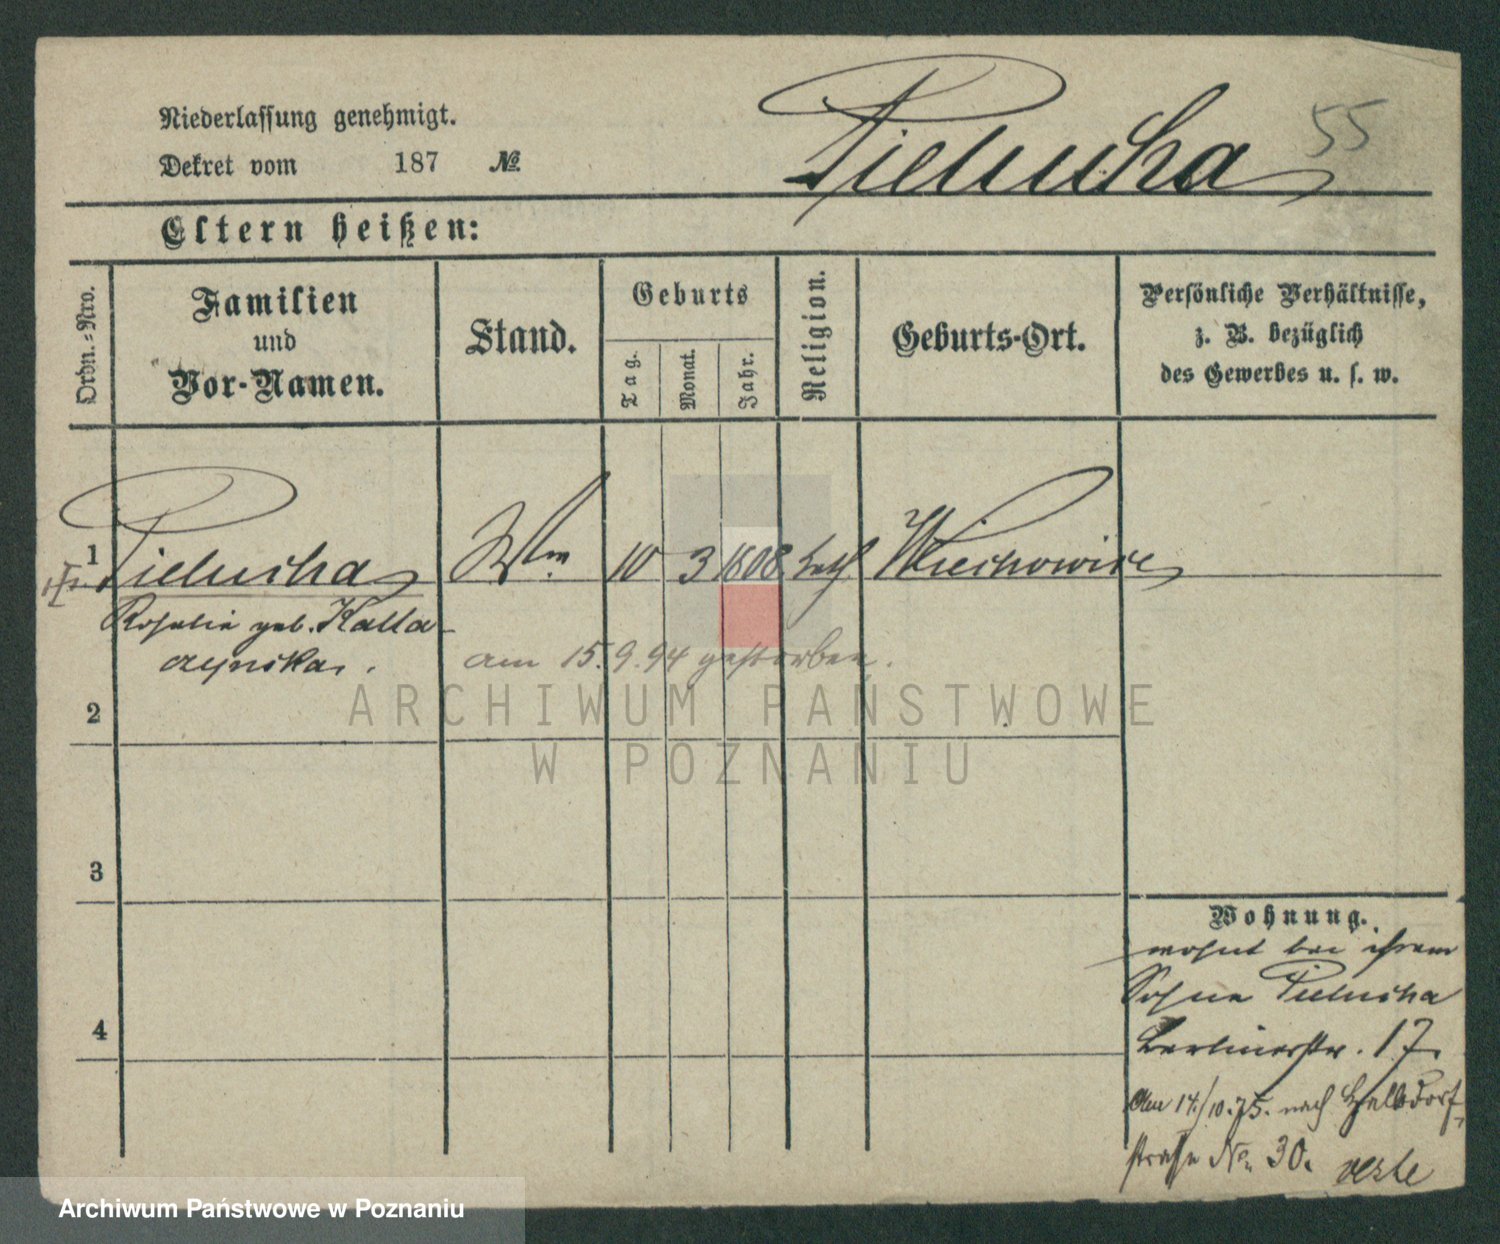 Niederlassung genehmigt.
Dekret vom 187 №
Pielucha
55
Eltern heißen:
Ordn.-Nro.
Familien
und
Vor-Namen.
Stand.
Geburts
Tag.
Monat.
Jahr.
Religion.
Geburts-Ort.
Persönliche Verhältnisse,
z. B. bezüglich
des Gewerbes u. s. w.
1 Pielucha Ww 10 3 1808 kath Wiechowice
Rosalie geb. Kalla-
czynska.
am 15.9.94 gestorben.
2
3
4
Wohnung.
wohnt bei ihrem
Sohne Pielucha
Berlinerstr. 17.
Am 14/10.75. nach Halbdorf-
straße No. 30.
ARCHIWUM PAŃSTWOWE
W POZNANIU
Archiwum Państwowe w Poznaniu